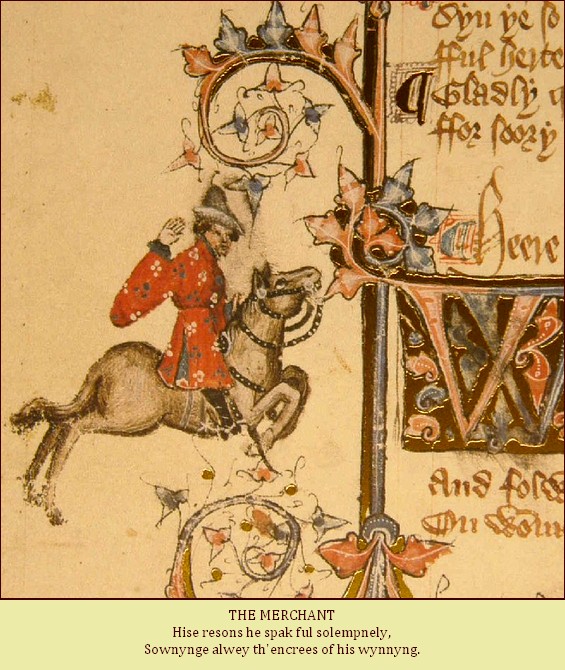 Syn ye so
fful herte
Gladly q
ffor soory
Heere
W
And folw
On wom
THE MERCHANT
Hise resons he spak ful solempnely,
Sownynge alwey th'encrees of his wynnyng.